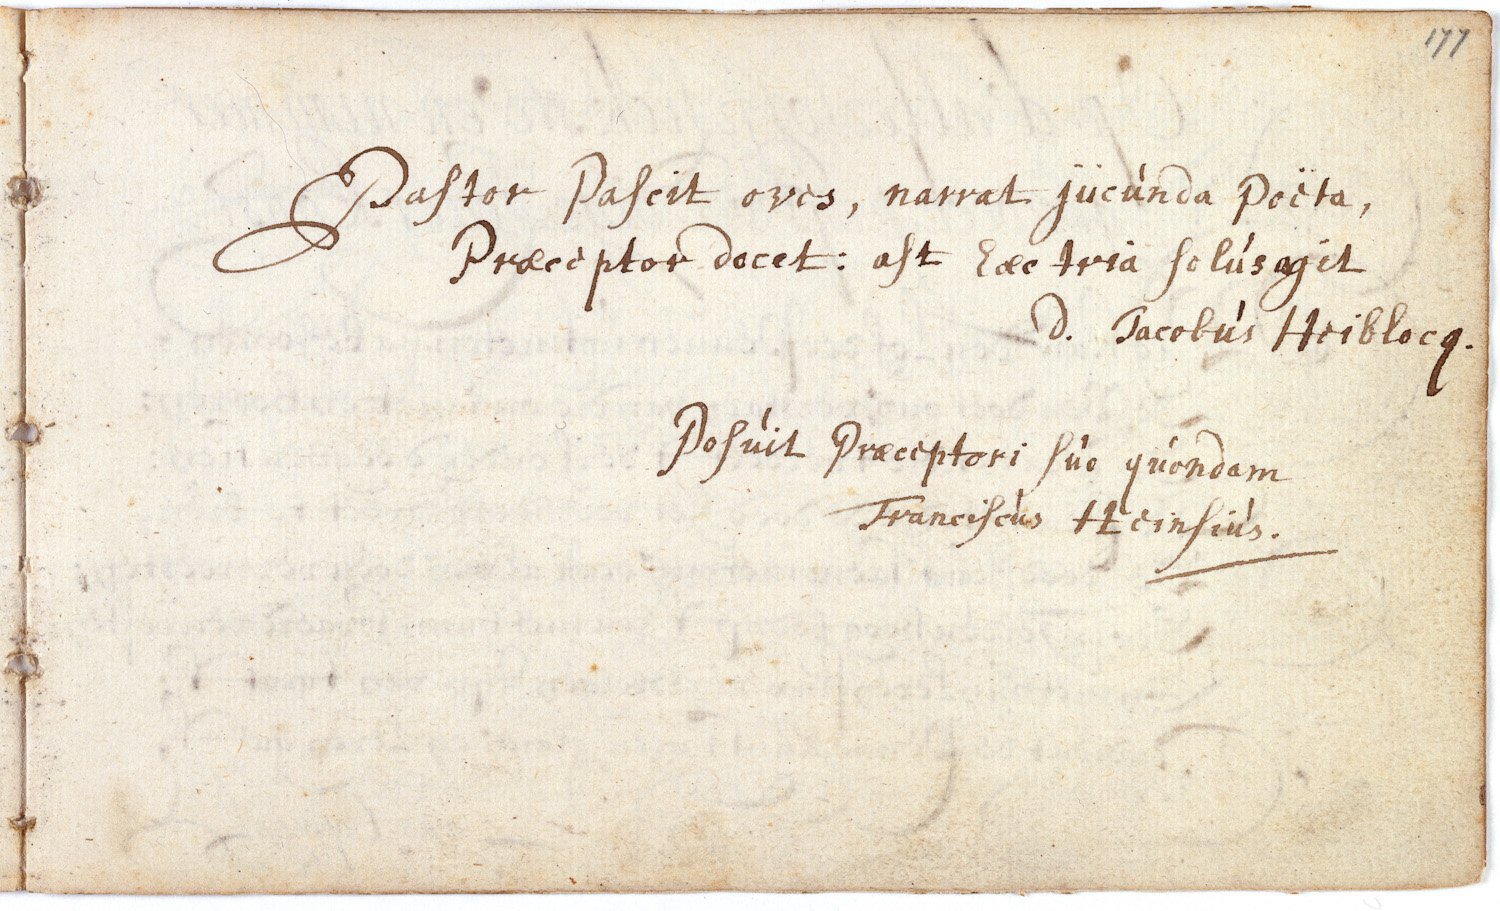 177
Pastor Pascit oves, narrat jucunda Poëta,
Præceptor docet: ast hæc tria solus agit
D. Jacobus Heiblocq.
Posuit Præceptori suo quondam
Franciscus Heinsius.